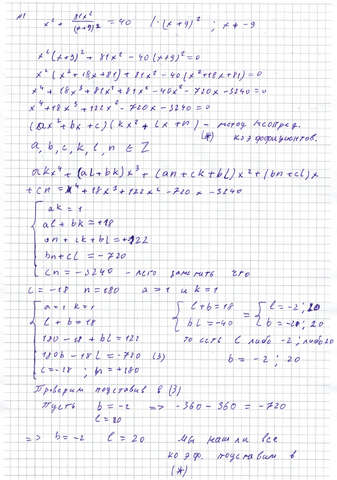 №1 x² + 81x²/(x+9)² = 40 /·(x+9)² ; x ≠ -9
x²(x+9)² + 81x² - 40(x+9)² = 0
x²(x²+18x+81) + 81x² - 40(x²+18x+81) = 0
x⁴ + 18x³ + 81x² + 81x² - 40x² - 720x - 3240 = 0
x⁴ + 18x³ + 122x² - 720x - 3240 = 0
(ax² + bx + c)(kx² + lx + n) - метод неопред.
(ж) коэффициентов.
a, b, c, k, l, n ∈ Z
akx⁴ + (al+bk)x³ + (an+ck+bl)x² + (bn+cl)x
+ cn = x⁴ + 18x³ + 122x² - 720x - 3240
ak = 1
al + bk = +18
an + ck + bl = +122
bn + cl = -720
cn = -3240 - легко заметить что
c = -18 n = 180 a = 1 и k = 1
a = 1 k = 1
l + b = 18
180 - 18 + bl = 122
180b - 18l = -720 (3)
c = -18 ; n = +180
l + b = 18
bl = -40
= l = -2 ; 20
b = -2 ; 20
то есть l либо -2 ; либо 20
b = -2 ; 20
Проверим подставив в (3)
Пусть b = -2 => -360 - 360 = -720
l = 20
=> b = -2 l = 20 Мы нашли все
коэф. подставим в
(ж)